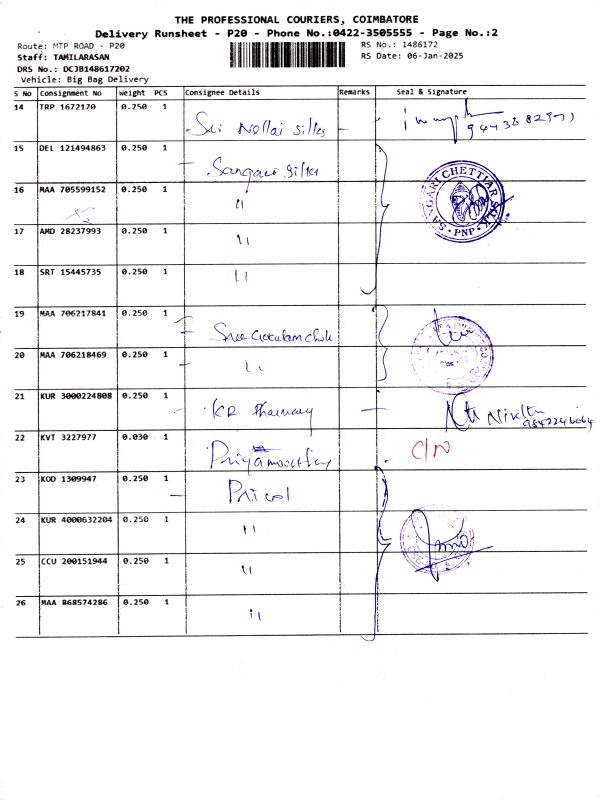 THE PROFESSIONAL COURIERS, COIMBATORE
Delivery Runsheet - P20 - Phone No.:0422-3505555 - Page No.:2
Route: MTP ROAD - P20
RS No.: 1486172
Staff: TAMILARASAN
RS Date: 06-Jan-2025
DRS No.: DCJB148617202
Vehicle: Big Bag Delivery
S No Consignment No Weight PCS Consignee Details Remarks Seal & Signature
14 TRP 1672170 0.250 1 Sri Nellai Silks
15 DEL 121494863 0.250 1 Sangari Silks
16 MAA 705599152 0.250 1 "
SANGARI CHETTIAR SILK
PNP
17 AMD 28237993 0.250 1 "
18 SRT 15445735 0.250 1 "
19 MAA 706217841 0.250 1 Sree
20 MAA 706218469 0.250 1 "
21 KUR 3000224808 0.250 1 KR Pharmacy
22 KVT 3227977 0.030 1 Priyamoorthy C/N
23 KOD 1309947 0.250 1 Pricol
24 KUR 4000632204 0.250 1 "
25 CCU 200151944 0.250 1 "
26 MAA 868574286 0.250 1 "